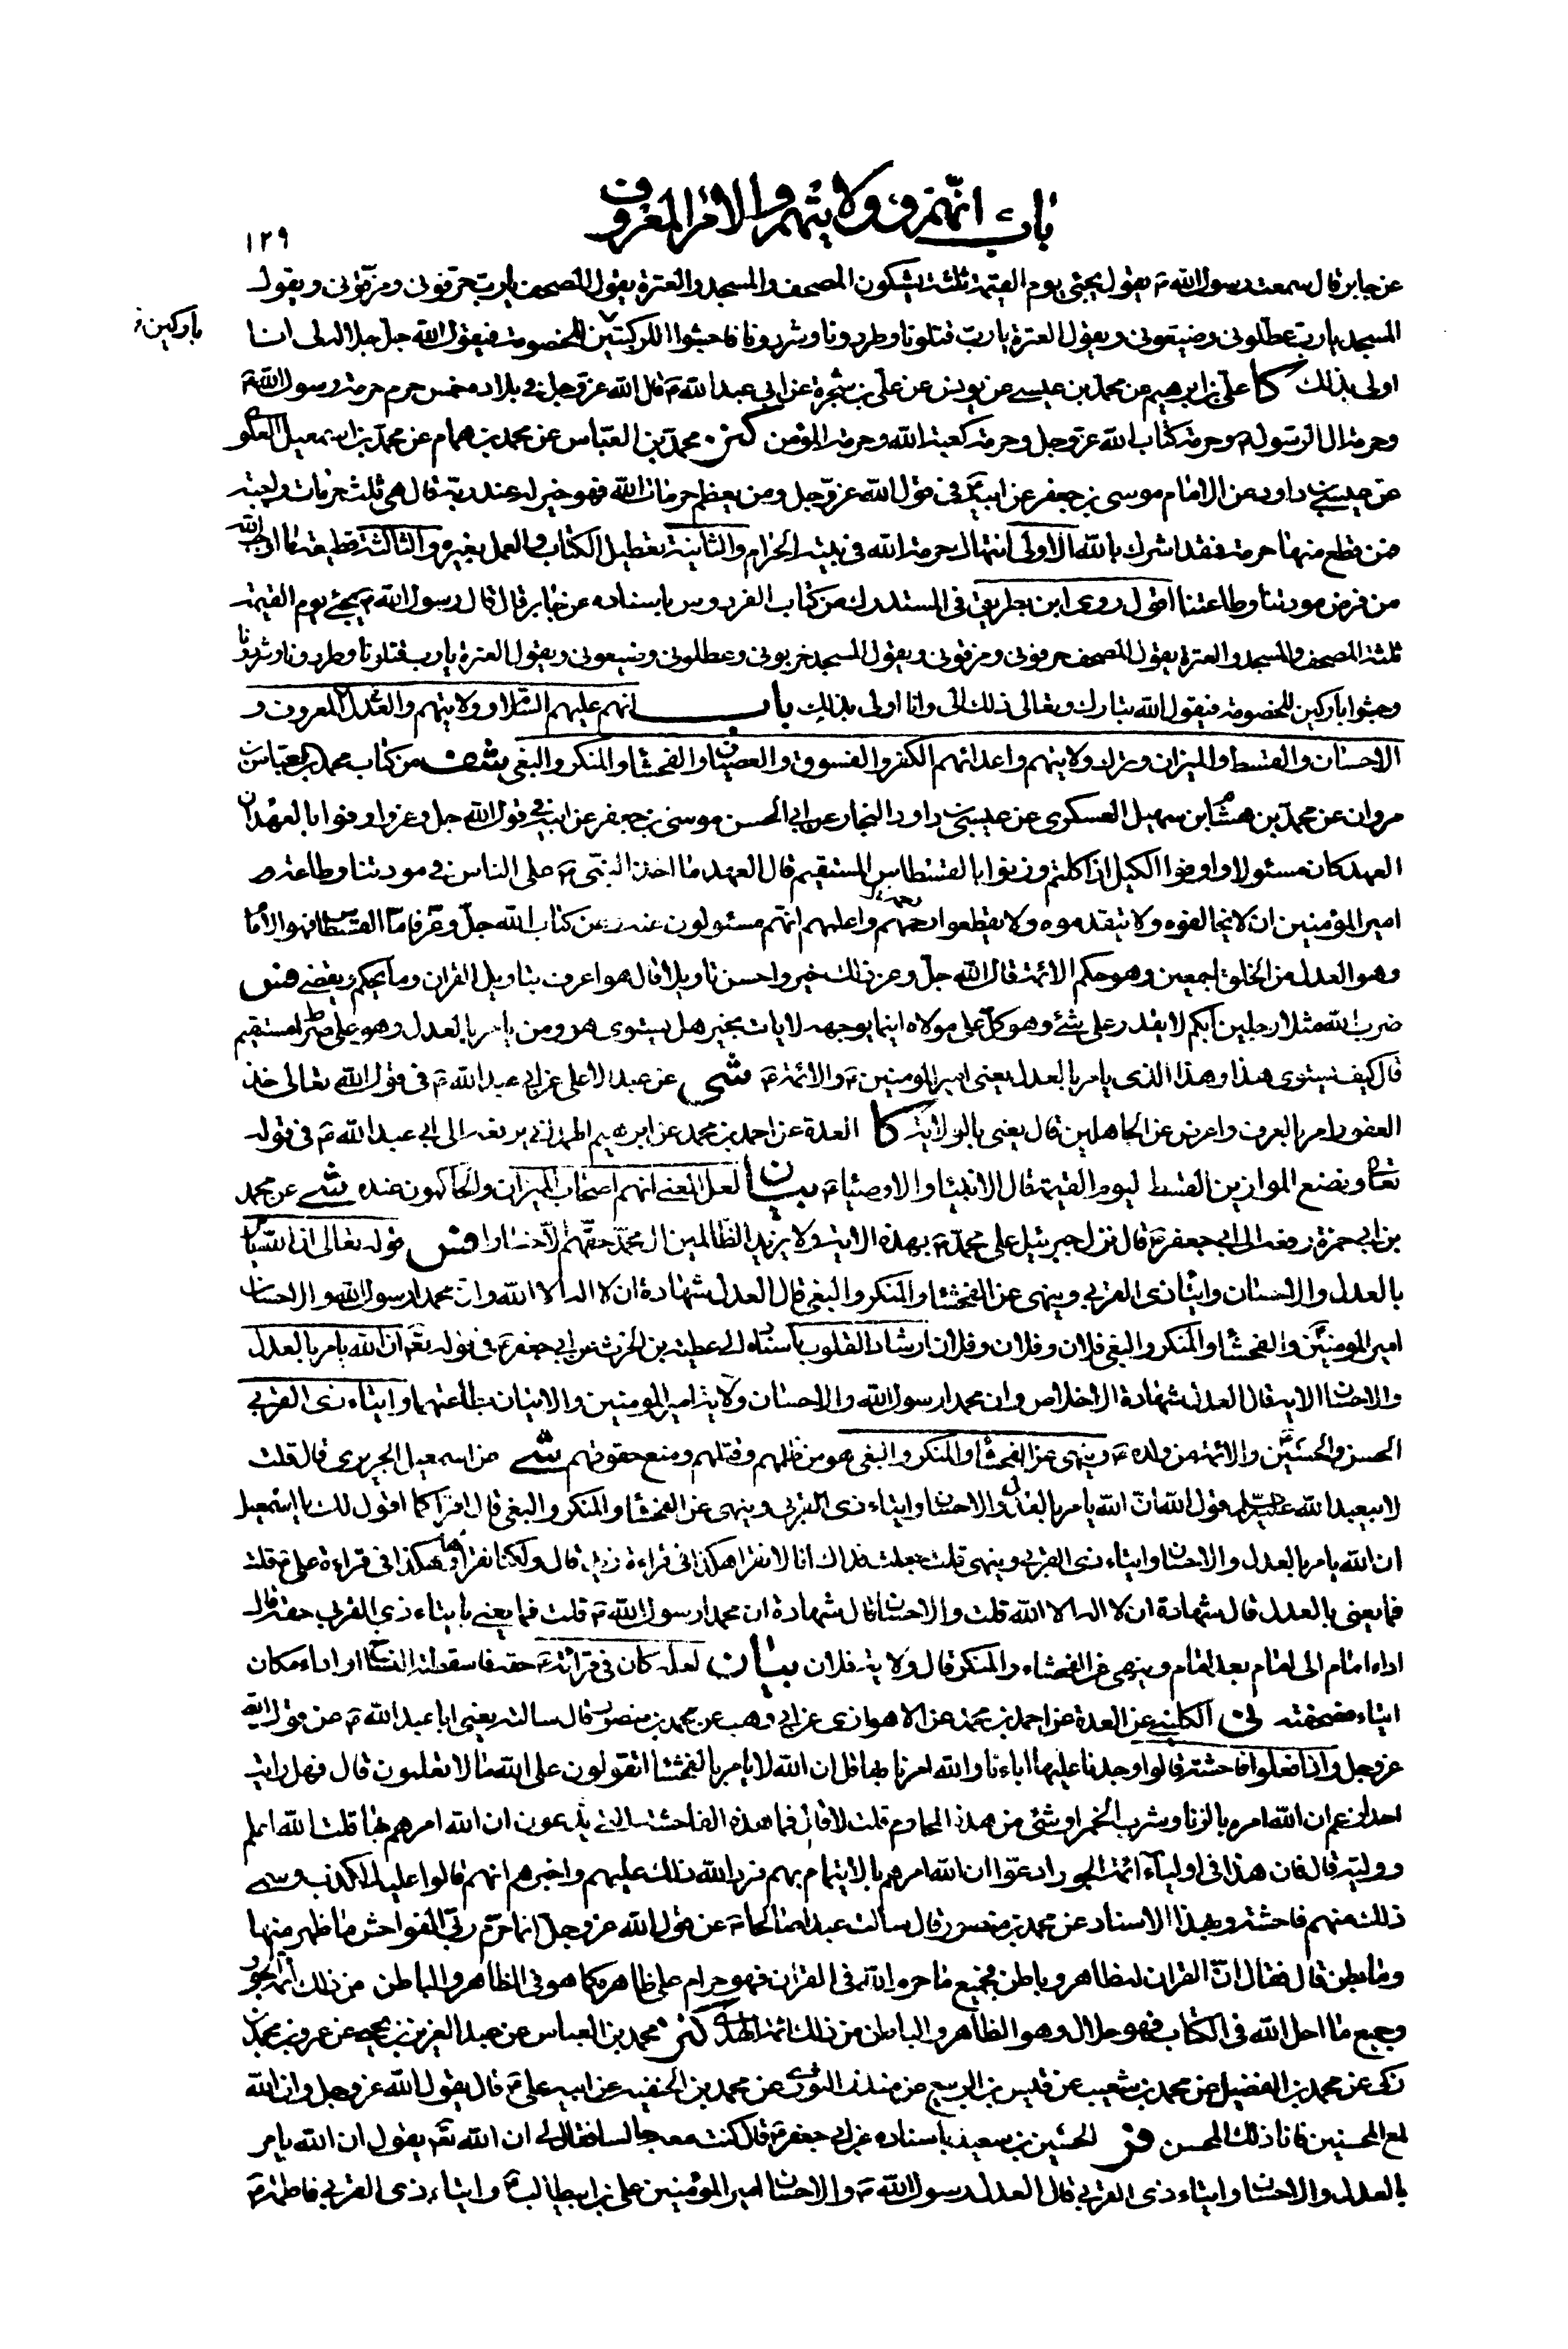 باب انهم و ولايتهم والامر المعروف
١٢٩
عن جابر قال سمعت رسول الله ص يقول يجئ يوم القيمة ثلثة يشكون المصحف والمسجد والعترة يقول المصحف يا رب حرقوني ومزقوني ويقول
المسجد يا رب عطلوني وضيعوني ويقول العترة يا رب قتلونا وطردونا وشردونا فاجثوا للركبتين للخصومة فيقول الله جل جلاله لي انا
باركين
اولى بذلك كا علي بن ابرهيم عن محمد بن عيسى عن يونس عن علي بن شجرة عن ابي عبد الله ع قال الله عز وجل في بلاده خمس حرم حرمة رسول الله ص
وحرمة ال الرسول ص وحرمة كتاب الله عز وجل وحرمة كعبة الله وحرمة المؤمن كنز محمد بن العباس عن محمد بن همام عن محمد بن اسمعيل العلوي
عن عيسى بن داود عن الامام موسى بن جعفر عن ابيه ع في قول الله عز وجل ومن يعظم حرمات الله فهو خير له عند ربه قال هي ثلث حرمات واجبة
فمن قطع منها حرمة فقد اشرك بالله الاولى انتهاك حرمة الله في بيته الحرام والثانية تعطيل الكتاب والعمل بغيره والثالثة قطيعة ما اوجب الله
من فرض مودتنا وطاعتنا اقول روى ابن بطريق في المستدرك من كتاب الفردوس باسناده عن جابر قال قال رسول الله ص يجئ يوم القيمة
ثلثة المصحف والمسجد والعترة يقول المصحف حرقوني ومزقوني ويقول المسجد خربوني وعطلوني وضيعوني ويقول العترة يا رب قتلونا وطردونا وشردونا
وجثوا باركين للخصومة فيقول الله تبارك وتعالى ذلك الى وانا اولى بذلك باب انهم عليهم السلام وولايتهم والعدل المعروف و
الاحسان والقسط والميزان وترك ولايتهم واعدائهم الكفر والفسوق والعصيان والفحشاء والمنكر والبغي شف من كتاب محمد بن العباس بن
مروان عن محمد بن همام بن سهيل العسكري عن عيسى بن داود النجار عن ابي الحسن موسى بن جعفر عن ابيه في قول الله جل وعز واوفوا بالعهد ان
العهد كان مسئولا واوفوا الكيل اذا كلتم وزنوا بالقسطاس المستقيم قال العهد ما اخذ النبي ص على الناس في مودتنا وطاعة
امير المؤمنين ان لا يخالفوه ولا يتقدموه ولا يقطعوا رحمه واعلمهم انهم مسئولون عنه وعن كتاب الله جل وعز فاما القسطاس فهو الامام
وهو العدل من الخلق اجمعين وهو حكم الائمة قال الله جل وعز ذلك خير واحسن تاويلا قال هو اعرف بتاويل القران وما يحكم ويقضي فس
ضرب الله مثلا رجلين ابكم لا يقدر على شئ وهو كل على مولاه اينما يوجهه لا يات بخير هل يستوي هو ومن يامر بالعدل وهو على صراط مستقيم
قال كيف يستوي هذا وهذا الذي يامر بالعدل يعني امير المومنين ع والائمة ع شى عن عبد الاعلى عن ابي عبد الله ع في قول الله تعالى خذ
العفو وامر بالعرف واعرض عن الجاهلين قال يعني بالولاية كا العدة عن احمد بن محمد عن ابرهيم الهمداني يرفعه الى ابي عبد الله ع في قوله
تعالى ونضع الموازين القسط ليوم القيمة قال الانبياء والاوصياء ع بيان لعل المعنى انهم اصحاب الميزان والحاكمون عنده شى عن محمد
بن ابي حمزة رفعه الى ابي جعفر ع قال نزل جبرئيل على محمد ص بهذه الاية ولا يزيد الظالمين ال محمد حقهم الا خسارا فس قوله تعالى ان الله يامر
بالعدل والاحسان وايتاء ذي القربى وينهى عن الفحشاء والمنكر والبغي قال العدل شهادة ان لا اله الا الله وان محمدا رسول الله والاحسان
امير المومنين والفحشاء والمنكر والبغي فلان وفلان وفلان ارشاد القلوب باسناده الى عطية بن الحرث عن ابي جعفر ع في قوله تعالى ان الله يامر بالعدل
والاحسان الاية قال العدل شهادة الاخلاص وان محمدا رسول الله والاحسان ولاية امير المومنين والاتيان بطاعتهما وايتاء ذي القربى
الحسن والحسين والائمة من ولده ع وينهى عن الفحشاء والمنكر والبغي هو من ظلمهم وقتلهم ومنع حقوقهم شى عن اسمعيل الحريري قال قلت
لابيعبد الله عليه السلام قول الله ان الله يامر بالعدل والاحسان وايتاء ذي القربى وينهى عن الفحشاء والمنكر والبغي قال اقرا كما اقول لك يا اسمعيل
ان الله يامر بالعدل والاحسان وايتاء ذي القربى وينهى قلت جعلت فداك انا لا نقرا هكذا في قراءة زيد قال ولكنا نقراها هكذا في قراءة علي ع قلت
فما يعني بالعدل قال شهادة ان لا اله الا الله قلت والاحسان قال شهادة ان محمدا رسول الله ص قلت فما يعني بايتاء ذي القربى حقه قال
اداء امام الى امام بعد امام وينهى عن الفحشاء والمنكر قال ولاية فلان بيان لعله كان في قرائته ع حقه فاسقطته النساخ او اداء مكان
ايتاء فصحفته نى الكليني عن العدة عن احمد بن محمد عن الاهوازي عن ابي وهب عن محمد بن منصور قال سالته يعني ابا عبد الله ع عن قول الله
عز وجل واذا فعلوا فاحشة قالوا وجدنا عليها اباءنا والله امرنا بها قل ان الله لا يامر بالفحشاء اتقولون على الله ما لا تعلمون قال فهل رايت
احدا زعم ان الله امره بالزنا وشرب الخمر او شئ من هذه المحارم قلت لا قال فما هذه الفاحشة التي يدعون ان الله امرهم بها قلت الله اعلم
ووليه قال فان هذا في اولياء ائمة الجور ادعوا ان الله امرهم بالايتمام بهم فرد الله ذلك عليهم واخبرهم انهم قالوا عليه الكذب وسمى
ذلك منهم فاحشة وبهذا الاسناد عن محمد بن منصور قال سالت عبدا صالحا ع عن قول الله عز وجل انما حرم ربي الفواحش ما ظهر منها
وما بطن قال فقال ان القران له ظاهر وباطن فجميع ما حرم الله في القران فهو حرام على ظاهره كما هو في الظاهر والباطن من ذلك ائمة الجور
وجميع ما احل الله في الكتاب فهو حلال وهو الظاهر والباطن من ذلك ائمة الهدى كنز محمد بن العباس عن عبد العزيز بن يحيى عن عمرو بن محمد بن
زكى عن محمد بن الفضيل عن محمد بن شعيب عن قيس بن الربيع عن منذر الثوري عن محمد بن الحنفيه عن ابيه علي ع قال يقول الله عز وجل وان الله
لمع المحسنين فانا ذلك المحسن فر الحسين بن سعيد باسناده عن ابي جعفر ع قال كنت معه جالسا فقال لي ان الله تعالى يقول ان الله يامر
بالعدل والاحسان وايتاء ذي القربى قال العدل رسول الله ص والاحسان امير المؤمنين علي بن ابيطالب ع وايتاء ذي القربى فاطمة ع